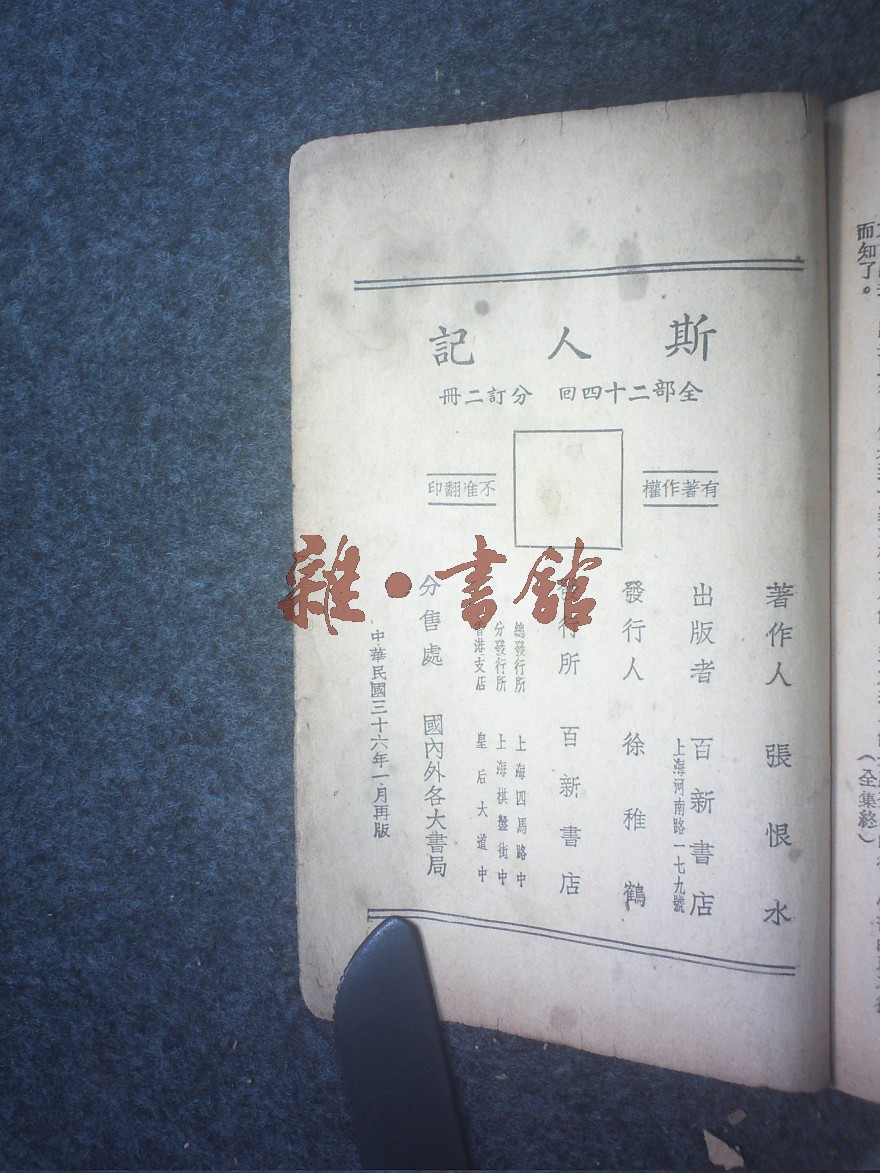 斯人記
全部二十四回 分訂二冊
有著作權
不准翻印
著作人 張恨水
出版者 百新書店
上海河南路一七九號
發行人 徐稚鶴
發行所 百新書店
總發行所 上海四馬路中
分發行所 上海棋盤街中
香港支店 皇后大道中
分售處 國內外各大書局
中華民國三十六年一月再版
雜·書館
而知了。
(全集終)